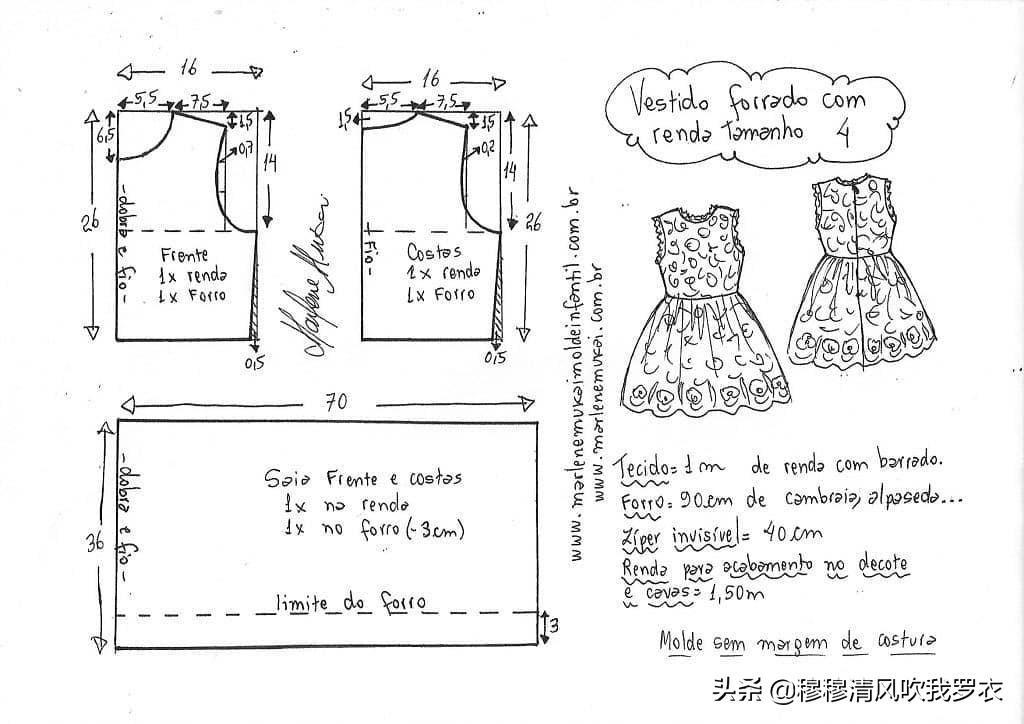 16
5,5
7,5
1,5
6,5
0,7
14
26
- dobra e fio -
Frente
1x renda
1x Forro
0,5
Marlene Mukai
16
5,5
7,5
1,5
1,5
0,2
14
26
- Fio -
Costas
1x renda
1x Forro
0,5
70
36
- dobra e fio -
Saia Frente e costas
1x na renda
1x no forro (-3cm)
limite do forro
3
www.marlenemukaimoldeinfantil.com.br
www.marlenemukai.com.br
Vestido forrado com
renda Tamanho 4
Tecido = 1m de renda com barrado.
Forro = 90cm de cambraia, alpaseda...
Zíper invisível = 40cm
Renda para acabamento no decote
e cavas = 1,50m
Molde sem margem de costura
头条 @穆穆清风吹我罗衣